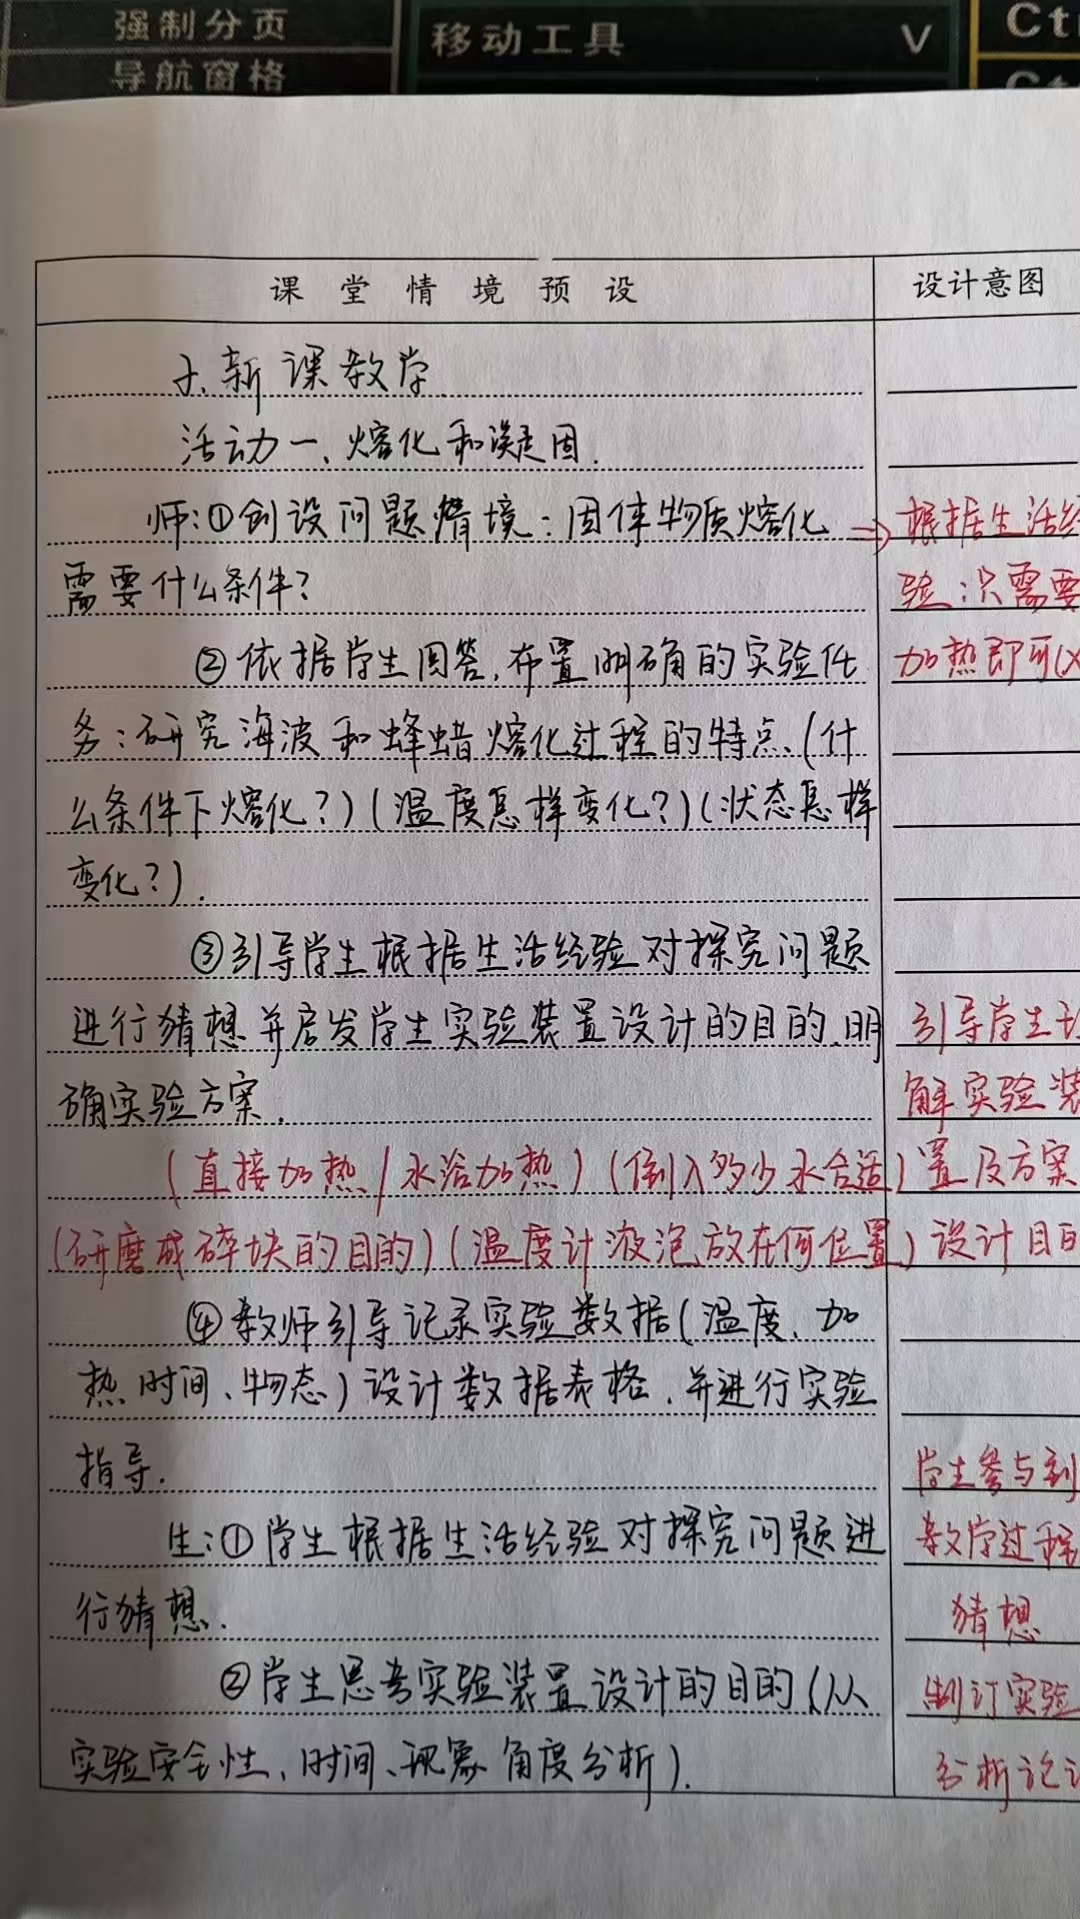 强制分页
导航窗格
移动工具 V
Ct
课堂情境预设 设计意图
2、新课教学
活动一、熔化和凝固.
师:①创设问题情境:固体物质熔化 ⇒ 根据生活经
需要什么条件? 验:只需要
②依据学生回答,布置明确的实验任 加热即可(X
务:研究海波和蜂蜡熔化过程的特点、(什
么条件下熔化?)(温度怎样变化?)(状态怎样
变化?).
③引导学生根据生活经验对探究问题
进行猜想并启发学生实验装置设计的目的,明 引导学生
确实验方案. 解实验装
(直接加热/水浴加热)(倒入多少水合适) 置及方案
(研磨成碎块的目的)(温度计液泡放在何位置) 设计目的
④教师引导记录实验数据(温度、加
热时间、物态)设计数据表格,并进行实验
指导. 学生参与到
生:①学生根据生活经验对探究问题进 教学过程
行猜想. 猜想
②学生思考实验装置设计的目的(从 制订实验
实验安全性、时间、现象角度分析). 分析论证